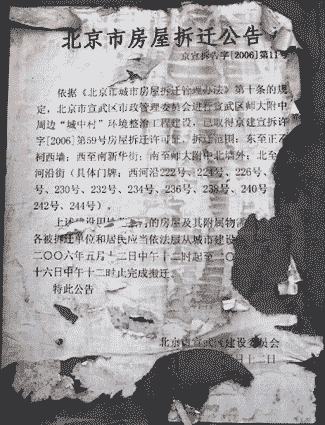 北京市房屋拆迁公告
京宣拆告字[2006]第11号
依据《北京市城市房屋拆迁管理办法》第十条的规
定，北京市宣武区市政管理委员会进行宣武区师大附中
周边“城中村”环境整治工程建设，已取得京建宣拆许
字[2006]第59号房屋拆迁许可证。拆迁范围：东至正
柯西墙；西至南新华街；南至师大附中北墙外；北至
河沿街（具体门牌：西河沿222号、224号、226号、
号、230号、232号、234号、236号、238号、240号
242号、244号）。
上述建设用地 的房屋及其附属物
各被拆迁单位和居民应当依法服从城市建设
二〇〇六年五月十二日中午十二时起至二〇
十六日中午十二时止完成搬迁
特此公告
北京市宣武区建设委员会
月十二日